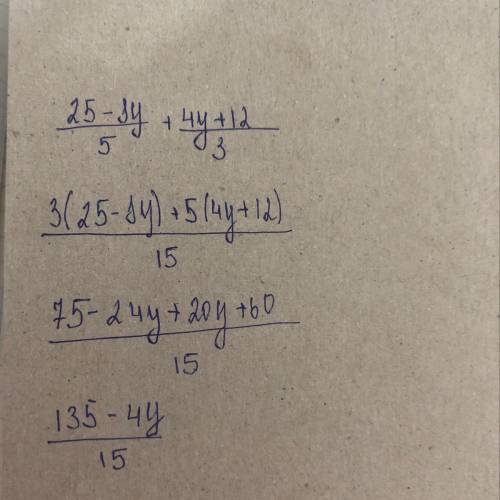 25-8y/5 + 4y+12/3
3(25-8y)+5(4y+12)/15
75-24y+20y+60/15
135-4y/15